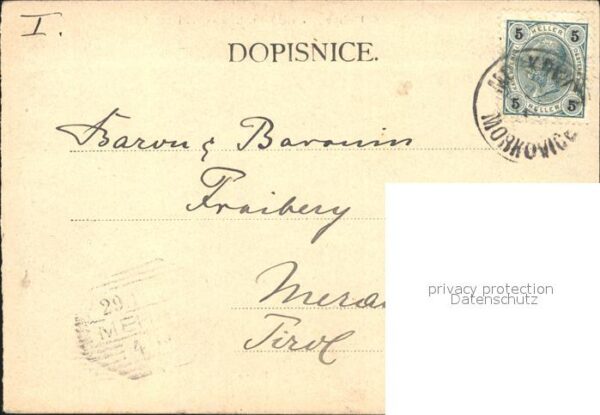 I.
DOPISNICE.
5 HELLER 5
5 HELLER 5
MORKOVICE
Baron & Baronin
Fraiberg
privacy protection
Datenschutz
Meran
Tirol
29
ME
4